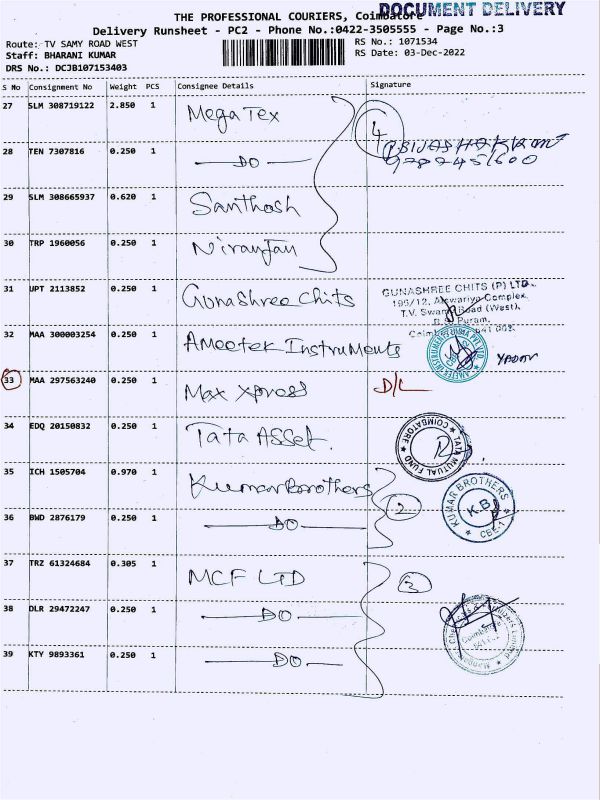 DOCUMENT DELIVERY
THE PROFESSIONAL COURIERS, Coimbatore
Delivery Runsheet - PC2 - Phone No.:0422-3505555 - Page No.:3
Route: TV SAMY ROAD WEST
Staff: BHARANI KUMAR
DRS No.: DCJB107153403
RS No.: 1071534
RS Date: 03-Dec-2022
S No Consignment No Weight PCS Consignee Details Signature
27 SLM 308719122 2.850 1 Mega Tex
4
28 TEN 7307816 0.250 1 DO
29 SLM 308665937 0.620 1 Santhosh
30 TRP 1960056 0.250 1 Niranjan
31 UPT 2113852 0.250 1 GunaShree Chits
GUNASHREE CHITS (P) LTD.
199/12, Aiswariya Complex,
T.V. Swamy Road (West),
R.S. Puram,
32 MAA 300003254 0.250 1 AMeetek InstruMents
33 MAA 297563240 0.250 1 Max Xpress D/L
34 EDQ 20150832 0.250 1 Tata ASSet.
TATA MUTUAL FUND ★ COIMBATORE ★
35 ICH 1505704 0.970 1 KumarBrothers
2
KUMAR BROTHERS
K.B
CBE-1
36 BWD 2876179 0.250 1 DO
37 TRZ 61324684 0.305 1 MCF LTD
3
38 DLR 29472247 0.250 1 DO
Coimbatore
39 KTY 9893361 0.250 1 DO